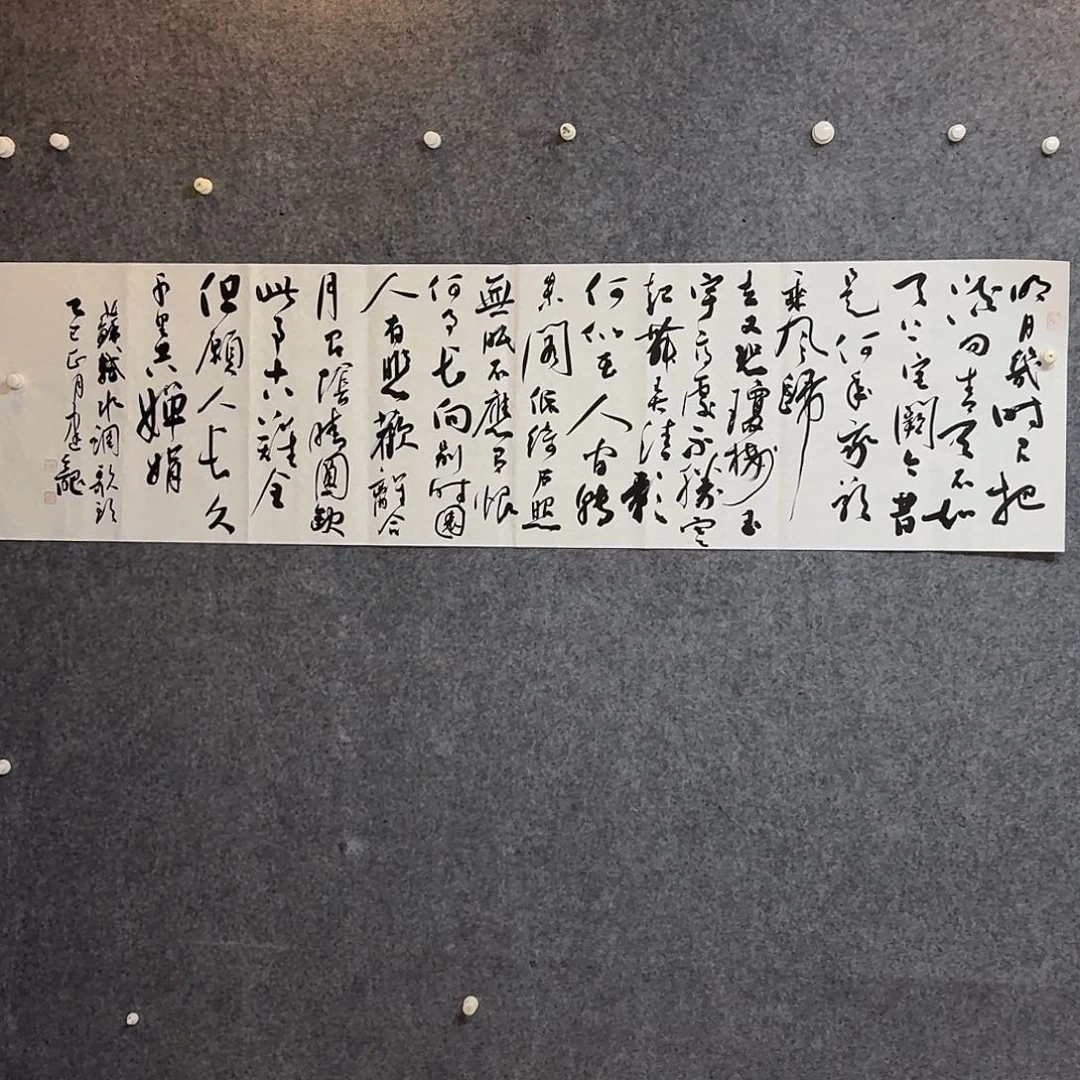 明月幾時有把
酒問青天不知
天上宮闕今昔
是何年我欲
乘風歸
去又恐瓊樓玉
宇高處不勝寒
起舞弄清影
何似在人間轉
朱閣低綺户照
無眠不應有恨
何事長向別時圓
人有悲歡離合
月有陰晴圓缺
此事古難全
但願人長久
千里共嬋娟
蘇軾水調歌頭
乙巳正月建龍